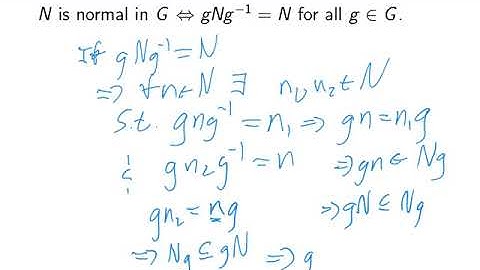 N is normal in G ⇔ gNg⁻¹ = N for all g ∈ G.
If gNg⁻¹ = N
⇒ ∀n∈N ∃ n₁, n₂ ∈ N
s.t. gng⁻¹ = n₁ ⇒ gn = n₁g
& gn₂g⁻¹ = n ⇒ gn ∈ Ng
gn₂ = ng ⇒ gN ⊆ Ng
⇒ Ng ⊆ gN ⇒ g